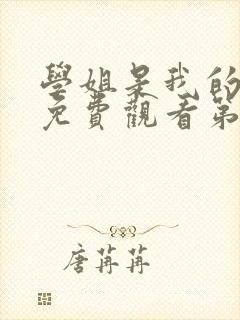 學姐是我的
免費觀看第
唐苒苒